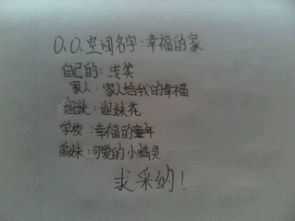 Q.Q.空间名字：幸福的家
自己的：浅笑
家人：家人给我的幸福
姐妹：姐妹花
学校：幸福的童年
弟妹：可爱的小精灵
求采纳！